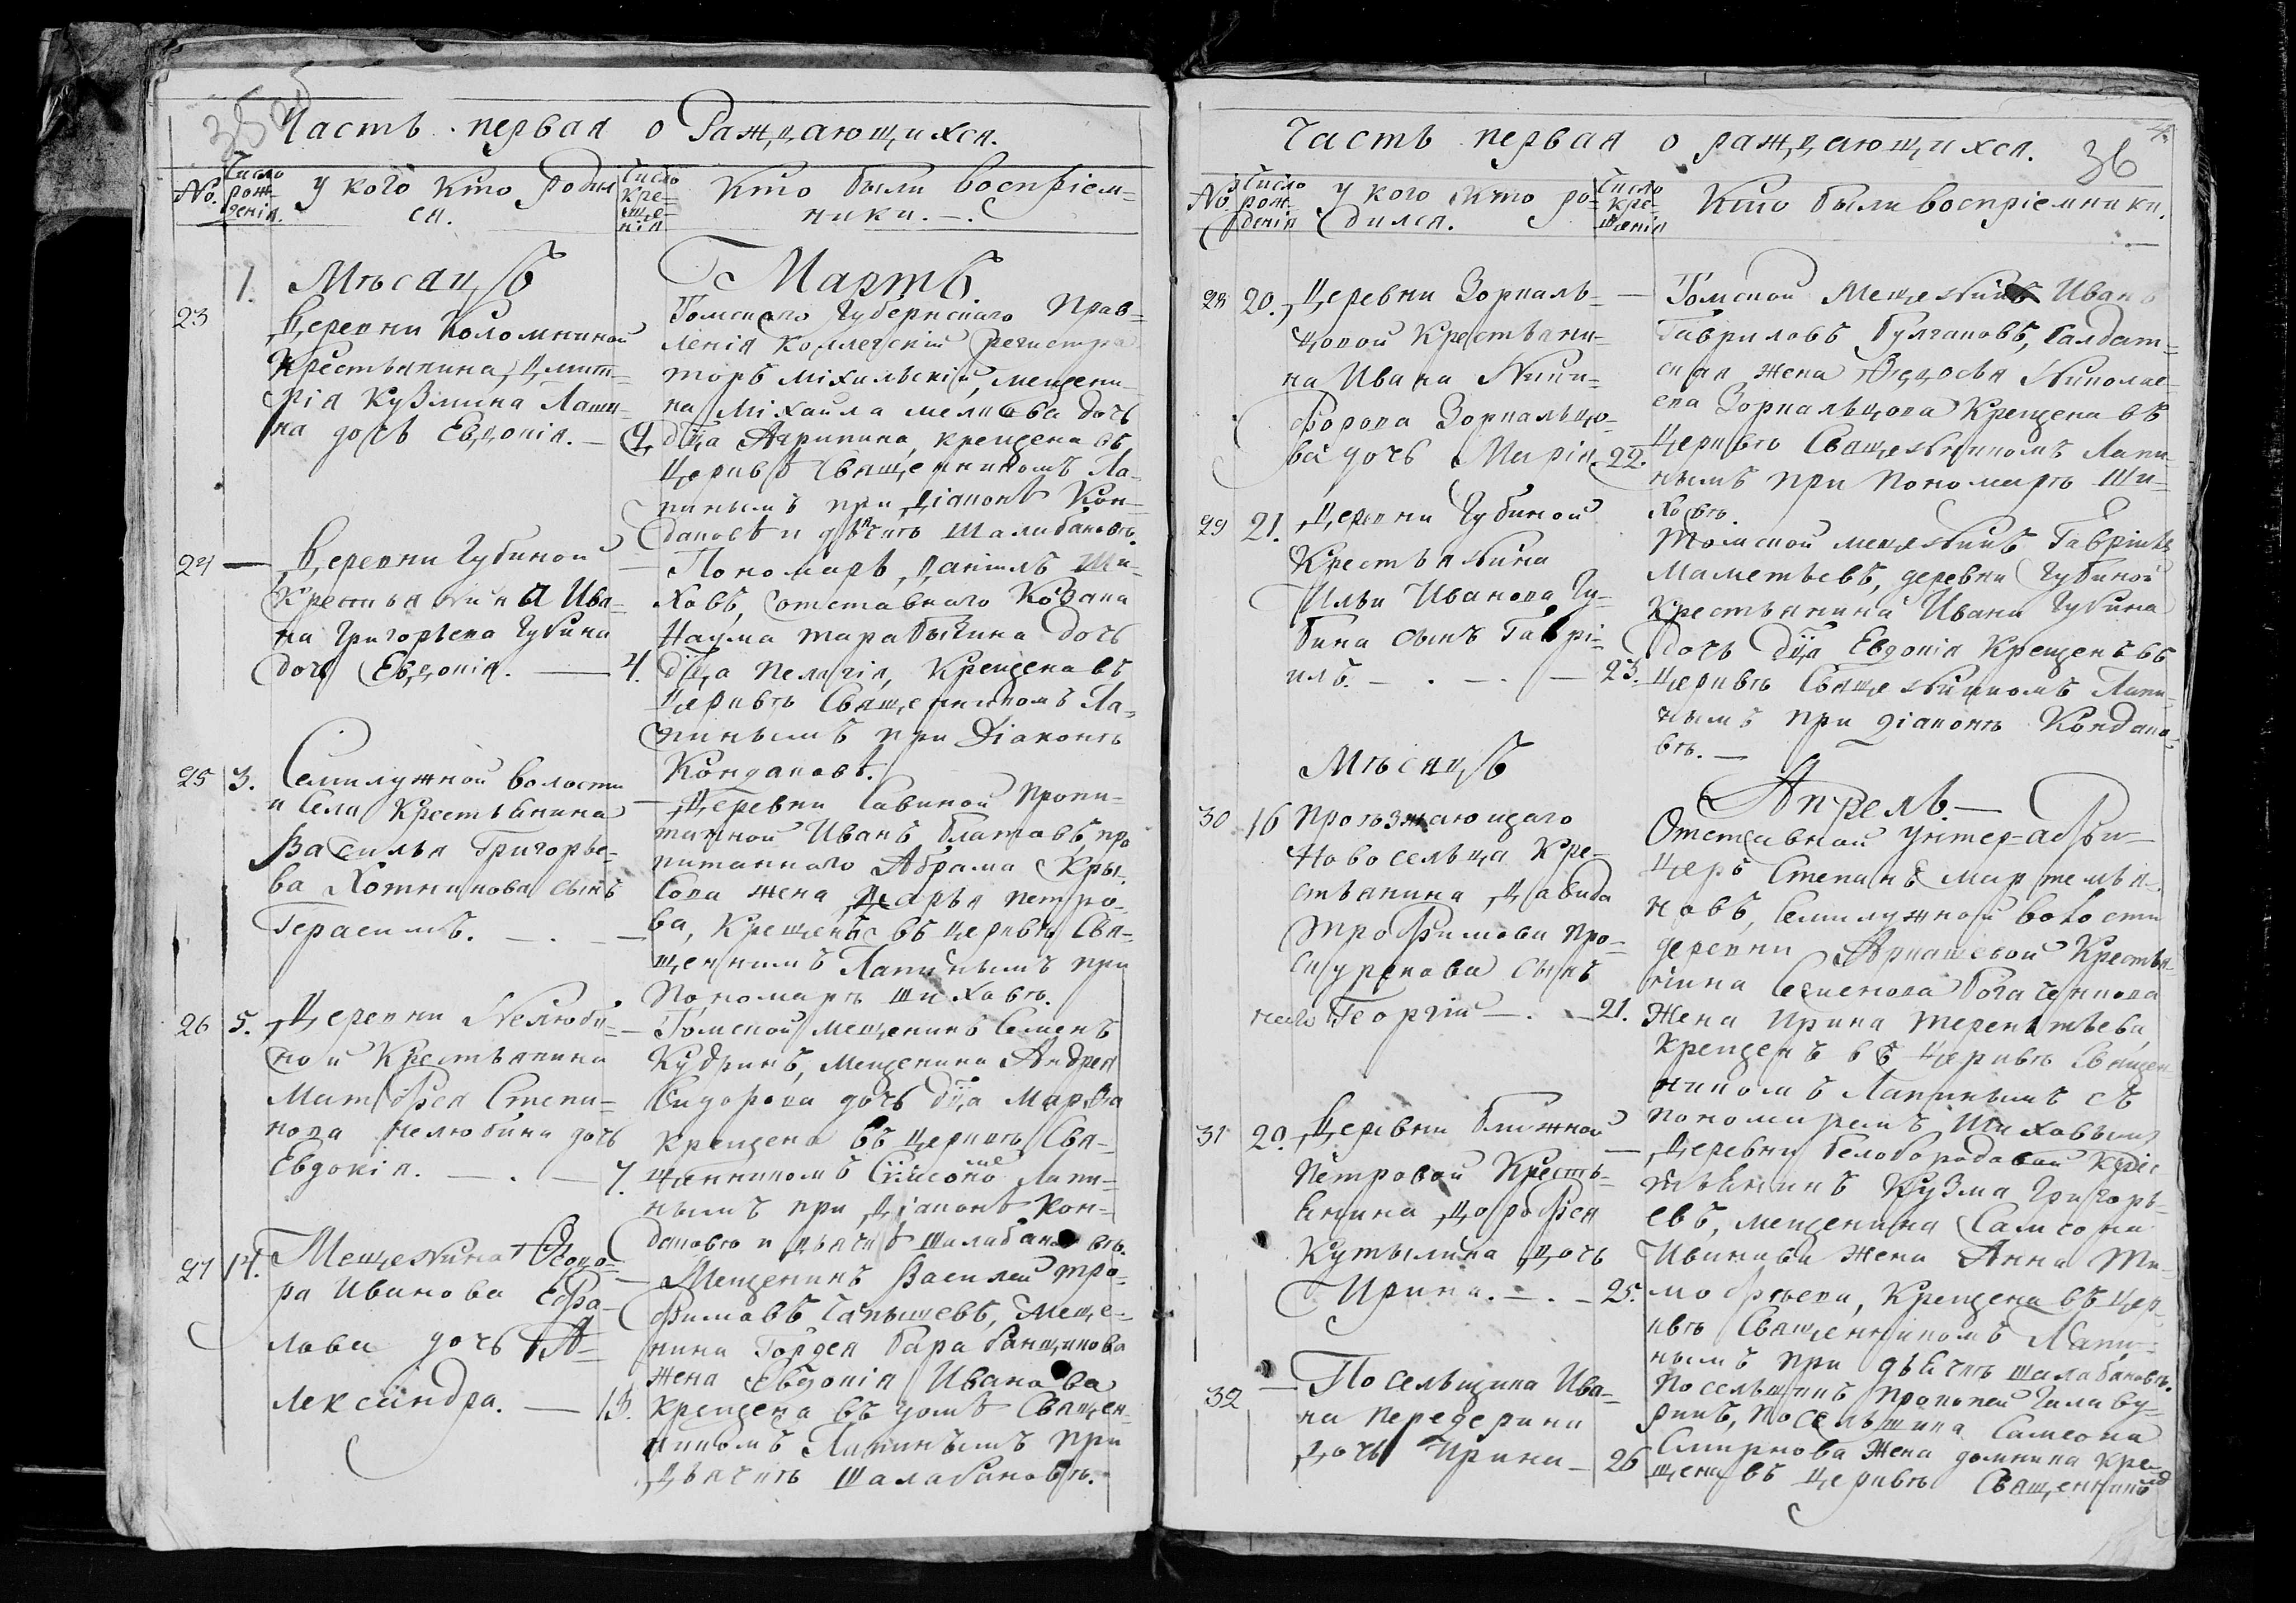 35
Часть первая о Раждающихся.
No. Число рождения. у кого кто родился. Число Крещения Кто были воспріемники.
1. Мѣсяцъ Мартъ
23
Деревни Коломниной
Крестьянина Дмит=
рія Кузмина Лаши=
на дочь Евдокія. — 4.
Томскаго Губернскаго Прав=
ленія Коллежскій регистра
торъ Михильскій, мещени=
на Міхаила дочь
дца Акрипина, крещена въ
Церквѣ Священникомъ Ла=
пинымъ при Діаконѣ Кон=
даковѣ и дьячкѣ Шалабановѣ.
24 — Деревни Губиной
Крестьянина Ива=
на Григорьева Губина
дочь Евдокія. — 4.
— Пономарь Даніилъ Ши=
ховъ, отставнаго Козака
Наума дочь
дца Пелагія, Крещена въ
Церквѣ Священникомъ Ла=
пинымъ при Діаконѣ
Кондаковѣ.
25 3. Семилужной волости
и Села Крестьянина
Василья Григорье=
ва сынъ
Герасимъ. — . —
— Деревни Савиной Пропи=
танной Иванъ Платовъ, про
питаннаго Абрама Кры=
сова жена Дарья Петро=
ва, Крещенъ въ церквѣ Свя=
щенникомъ Лапинымъ при
Пономарѣ Шиховѣ.
26 5. Деревни Нелюби=
ной Крестьянина
Матфея Степа=
нова Нелюбина дочь
Евдокія. — . — 7.
— Томской мещенинъ Семенъ
Кудринъ, Мещенина Андрея
Сидорова дочь дца Марѳа
Крещена въ церквѣ Свя=
щенникомъ Симсономъ Лапи=
нымъ при Діаконѣ Кон=
даковѣ и дьячкѣ Шалабановѣ.
27 14. Мещенина Ѳедо=
ра Иванова
лова дочь А=
лександра. — 13.
— Мещенинъ Василей Тро=
фимовъ Чапышевъ, Меще=
нина Гордея Барабанщикова
жена Евдокія Иванова
Крещена въ домѣ Священ=
никомъ Лапинымъ при
Дьячкѣ Шалабановѣ.
4.
36
Часть первая о раждающихся.
No. Число рожденія у кого кто родился. Число крещенія Кто были воспріемники.
28 20. Деревни Зоркаль=
цовой Крестьяни=
на Ивана Ники=
форова Зоркальцо=
ва дочь Марія. 22.
— Томской Мещенинъ Иванъ
Гавриловъ Булгаковъ, Салдат=
ская жена Ѳедосья Николае=
ва Зоркальцова Крещена въ
Церквѣ Священникомъ Лапи=
нымъ при Пономарѣ Ши=
ховѣ.
29 21. Деревни Губиной
Крестьянина
Ильи Иванова Гу=
бина сынъ Гаврі=
илъ. — . — . — 23.
Томской мещенинъ Гавріилъ
Маметьевъ, деревни Губиной
Крестьянина Ивана Губина
дочь дца Евдокія Крещенъ въ
Церквѣ Священникомъ Лапи=
нымъ при діаконѣ Кондако=
вѣ. —
Мѣсяцъ Апрель. —
30 16 Проѣзжающаго
Новосельца Кре=
стьянина Давида
Трофимова Про=
скурякова сынъ
Георгій — . — 21.
Отставной унтер-афи=
церъ Степанъ Мартемья=
новъ, Семилужной волости
деревни Аркашевой Крестья=
нина Семенова Богаченкова
Жена Ирина Терентьева,
Крещенъ въ Церквѣ Священ
никомъ Лапинымъ съ
пономаремъ Шиховымъ
31 20. Деревни Ближной
Петровой Кресть=
янина Дорофея
Кутылина дочь
Ирина. — . — 25.
— Деревни Белобородовой Крес
тьянинъ Кузма Григорь=
евъ, мещенина Самсона
Иванова жена Анна Ти=
мофѣева, Крещена въ Цер=
квѣ Священникомъ Лапи=
нымъ при дьячкѣ Шалабановѣ.
32 — Посельщика Ива=
на Передерина
Дочь Ирина — 26
Посельщикъ Прокопей
Посельщика Самсона
Смирнова Жена Домнина Кре=
щена въ Церквѣ Священникомъ